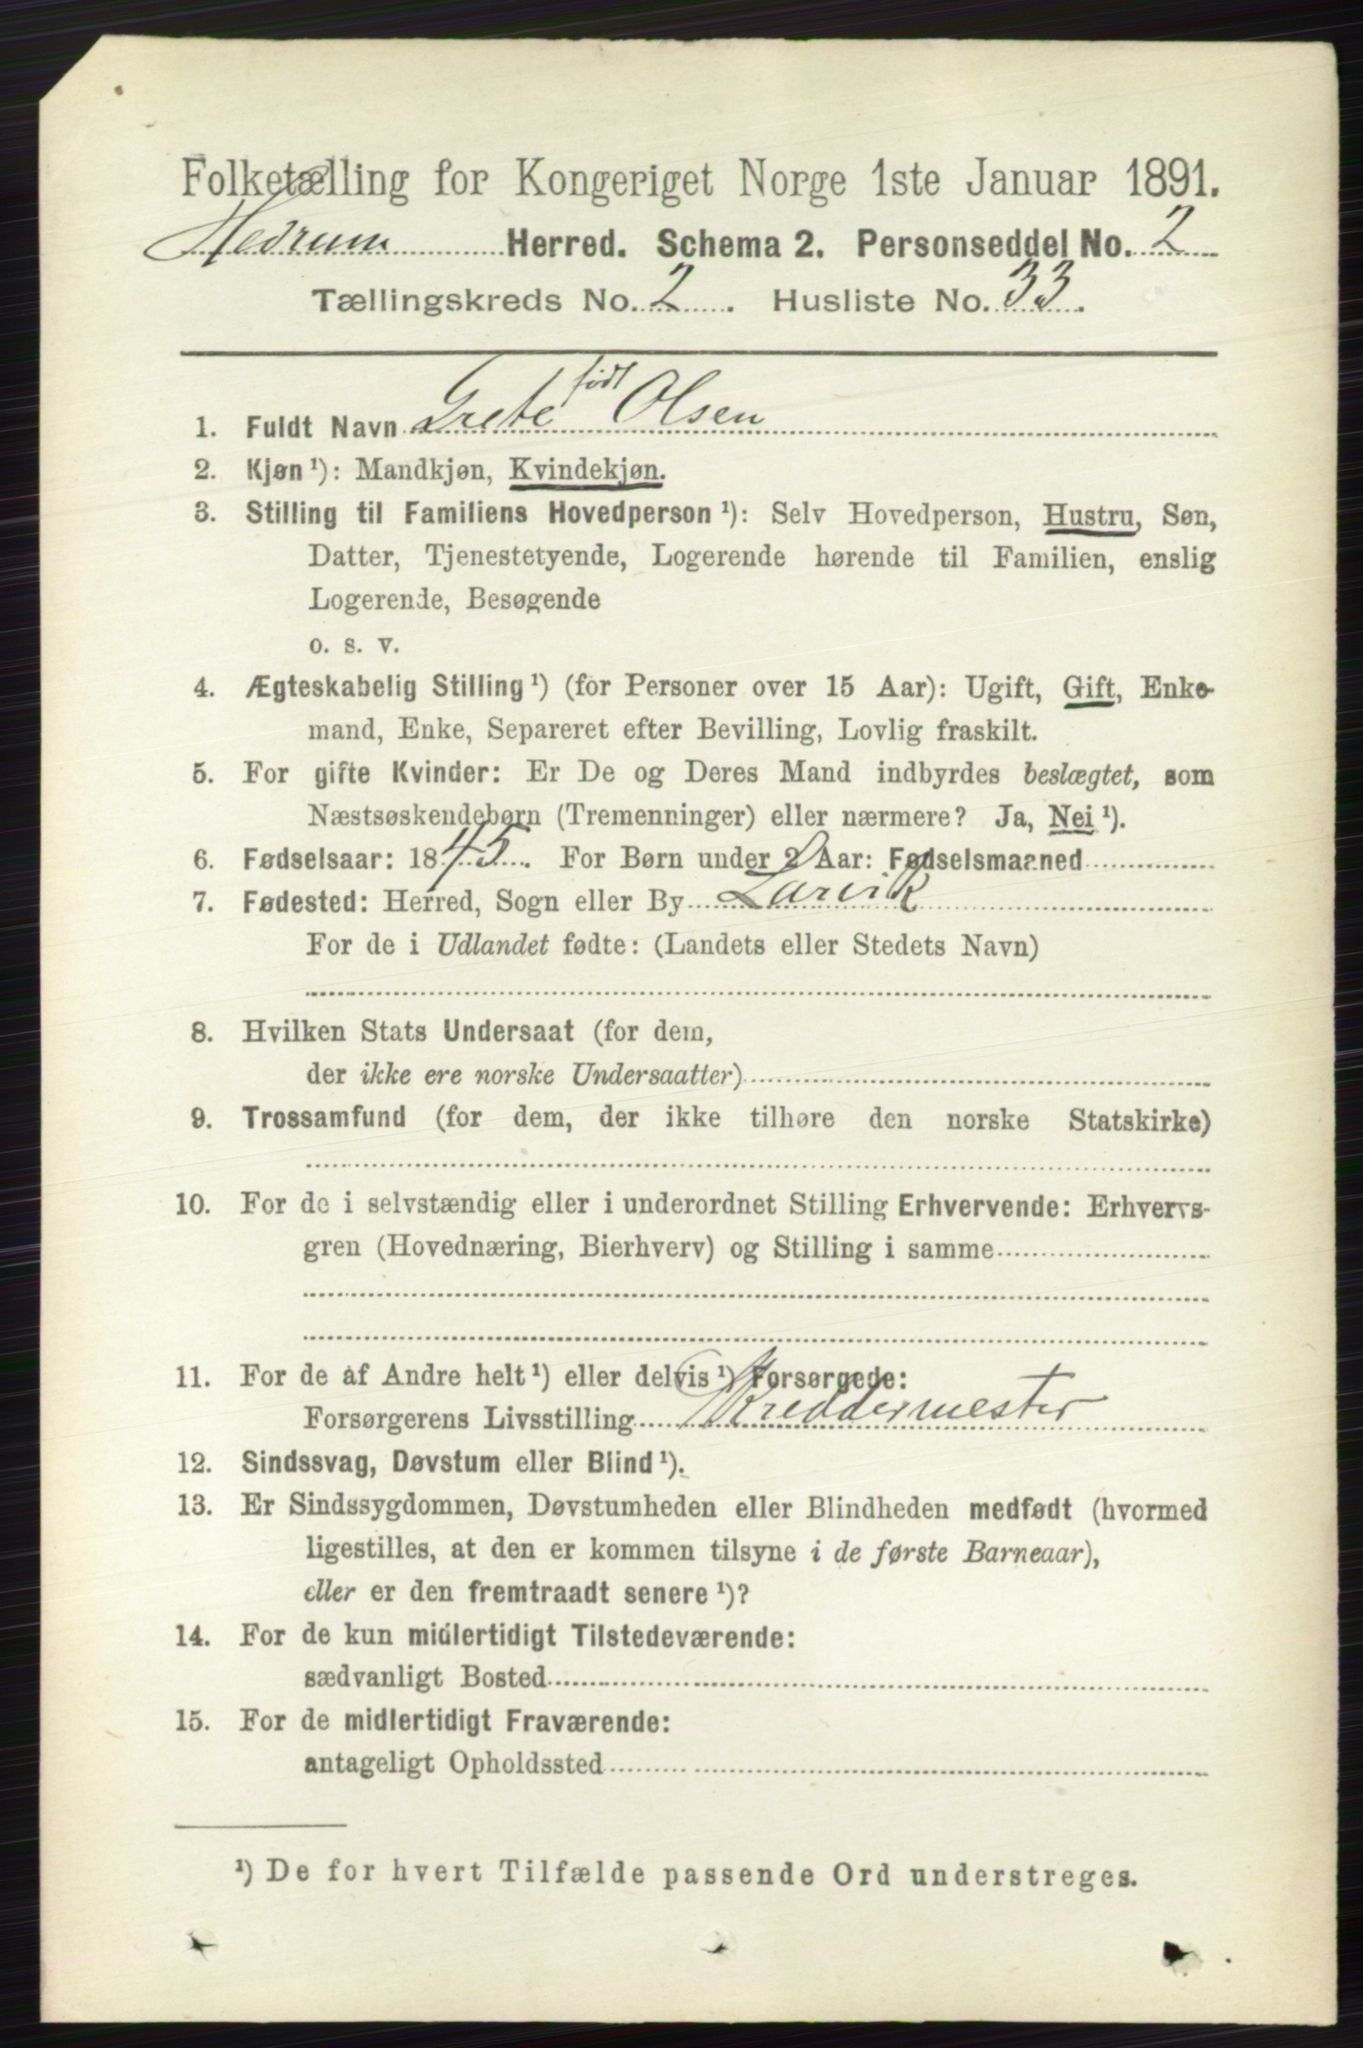 Folketælling for Kongeriget Norge 1ste Januar 1891.
Hedrum Herred. Schema 2. Personseddel No. 2
Tællingskreds No. 2. Husliste No. 33.
født
1. Fuldt Navn Grete Olsen
2. Kjøn ¹): Mandkjøn, Kvindekjøn.
3. Stilling til Familiens Hovedperson ¹): Selv Hovedperson, Hustru, Søn,
Datter, Tjenestetyende, Logerende hørende til Familien, enslig
Logerende, Besøgende
o. s. v.
4. Ægteskabelig Stilling ¹) (for Personer over 15 Aar): Ugift, Gift, Enke-
mand, Enke, Separeret efter Bevilling, Lovlig fraskilt.
5. For gifte Kvinder: Er De og Deres Mand indbyrdes beslægtet, som
Næstsøskendebørn (Tremenninger) eller nærmere? Ja, Nei ¹).
6. Fødselsaar: 1845. For Børn under 2 Aar: Fødselsmaaned
7. Fødested: Herred, Sogn eller By Larvik
For de i Udlandet fødte: (Landets eller Stedets Navn)
8. Hvilken Stats Undersaat (for dem,
der ikke ere norske Undersaatter)
9. Trossamfund (for dem, der ikke tilhøre den norske Statskirke)
10. For de i selvstændig eller i underordnet Stilling Erhvervende: Erhvervs-
gren (Hovednæring, Bierhverv) og Stilling i samme
11. For de af Andre helt ¹) eller delvis ¹) Forsørgede:
Forsørgerens Livsstilling Skreddermester
12. Sindssvag, Døvstum eller Blind ¹).
13. Er Sindssygdommen, Døvstumheden eller Blindheden medfødt (hvormed
ligestilles, at den er kommen tilsyne i de første Barneaar),
eller er den fremtraadt senere ¹)?
14. For de kun midlertidigt Tilstedeværende:
sædvanligt Bosted
15. For de midlertidigt Fraværende:
antageligt Opholdssted
¹) De for hvert Tilfælde passende Ord understreges.